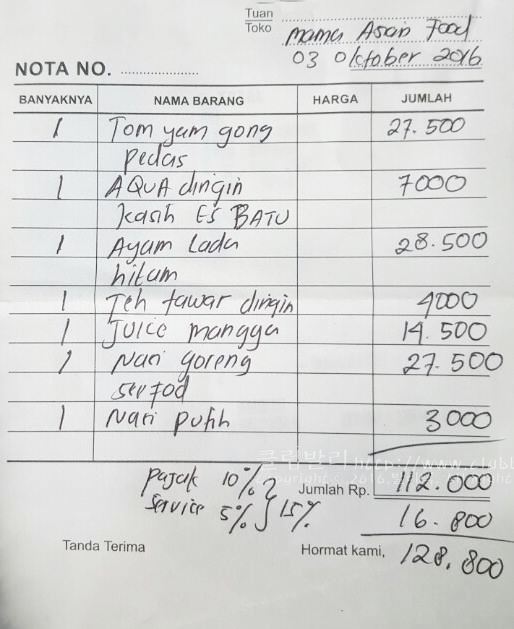 Tuan
Toko
Mama Asian Food
03 Oktober 2016
NOTA NO. ....................
BANYAKNYA NAMA BARANG HARGA JUMLAH
1 Tom yam gong 27.500
pedas
1 AQUA dingin 7000
kasih ES BATU
1 Ayam Lada 28.500
hitam
1 Teh tawar dingin 4000
1 Juice mangga 14.500
1 Nasi goreng 27.500
seafod
1 Nasi putih 3000
클럽발리 http://www.clubb
Pajak 10% Jumlah Rp. 112.000
Service 5% 15% 16.800
Tanda Terima Hormat kami, 128.800